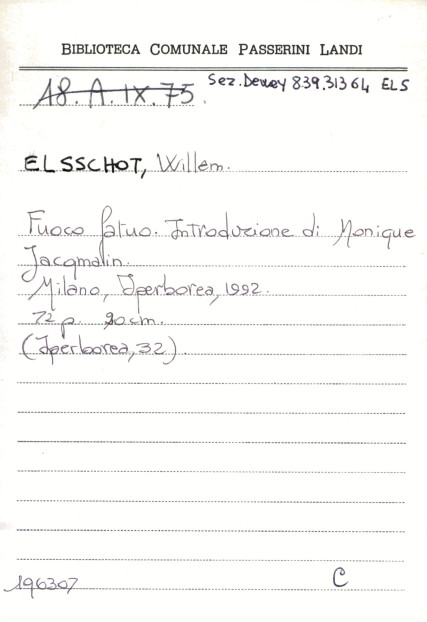 BIBLIOTECA COMUNALE PASSERINI LANDI
18.A.IX.75. Sez. Dewey 839.31364 ELS
ELSSCHOT, Willem.
Fuoco fatuo. Introduzione di Monique
Jacqmain.
Milano, Iperborea, 1992.
72 p. 20 cm.
(Iperborea, 32)
196307 C